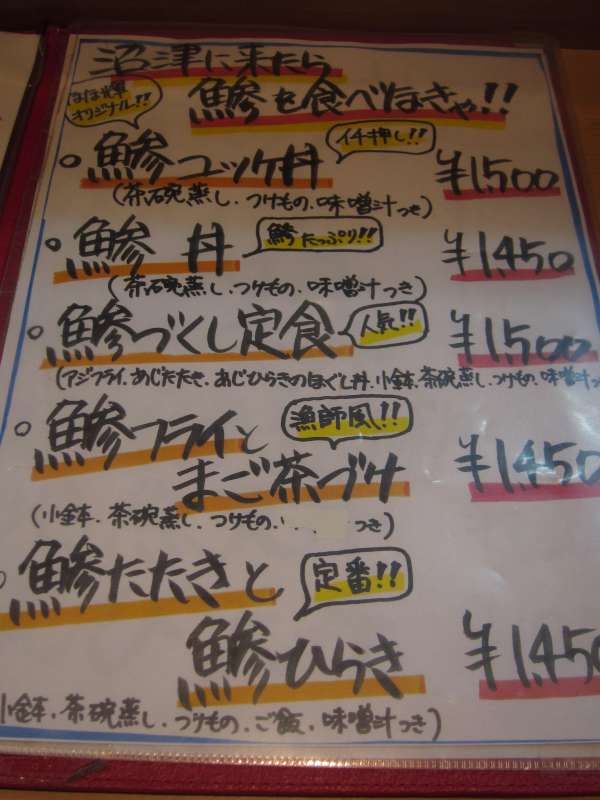 沼津に来たら
鯵を食べなきゃ!!
ほほ輝
オリジナル!!
イチ押し!!
鯵ユッケ丼 ¥1,500
(茶碗蒸し、つけもの、味噌汁つき)
鯵丼 鯵たっぷり!! ¥1,450
(茶碗蒸し、つけもの、味噌汁つき)
鯵づくし定食 人気!! ¥1,500
(アジフライ、あじたたき、あじひらきのほぐし丼、小鉢、茶碗蒸し、つけもの、味噌汁つ
鯵フライと 漁師風!!
まご茶づけ ¥1,450
(小鉢、茶碗蒸し、つけもの、 つき)
鯵たたきと 定番!!
鯵ひらき ¥1,450
小鉢、茶碗蒸し、つけもの、ご飯、味噌汁つき)